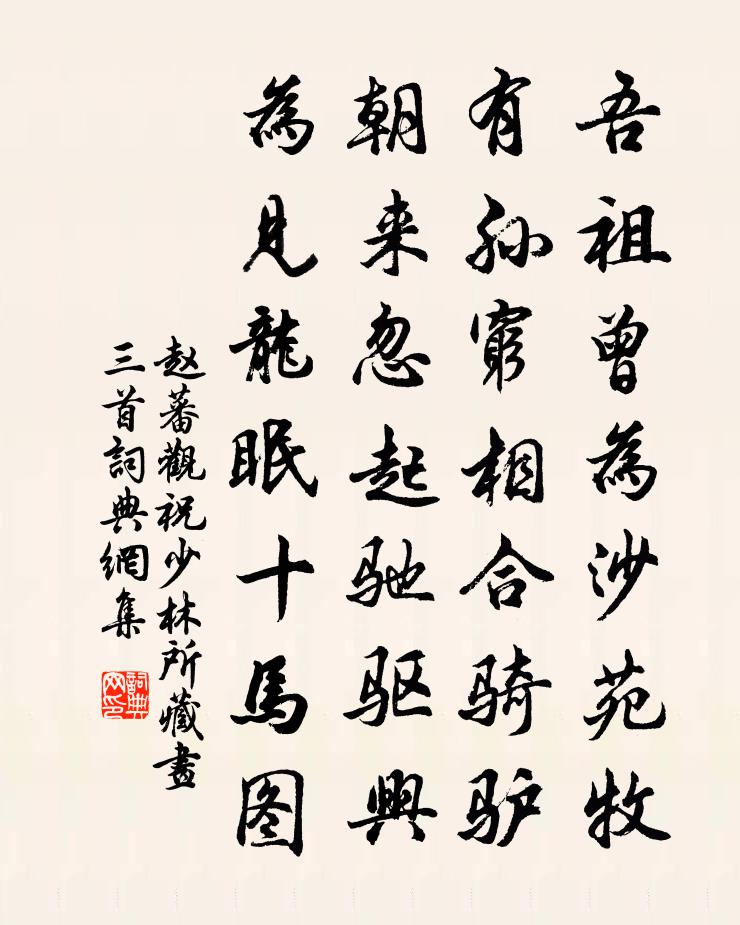 吾祖曾為沙苑牧
有孙窮相合骑驴
朝来忽起驰驱興
為見龍眠十馬图
赵蕃觀祝少林所藏畫
三首詞典網集
詞典網印